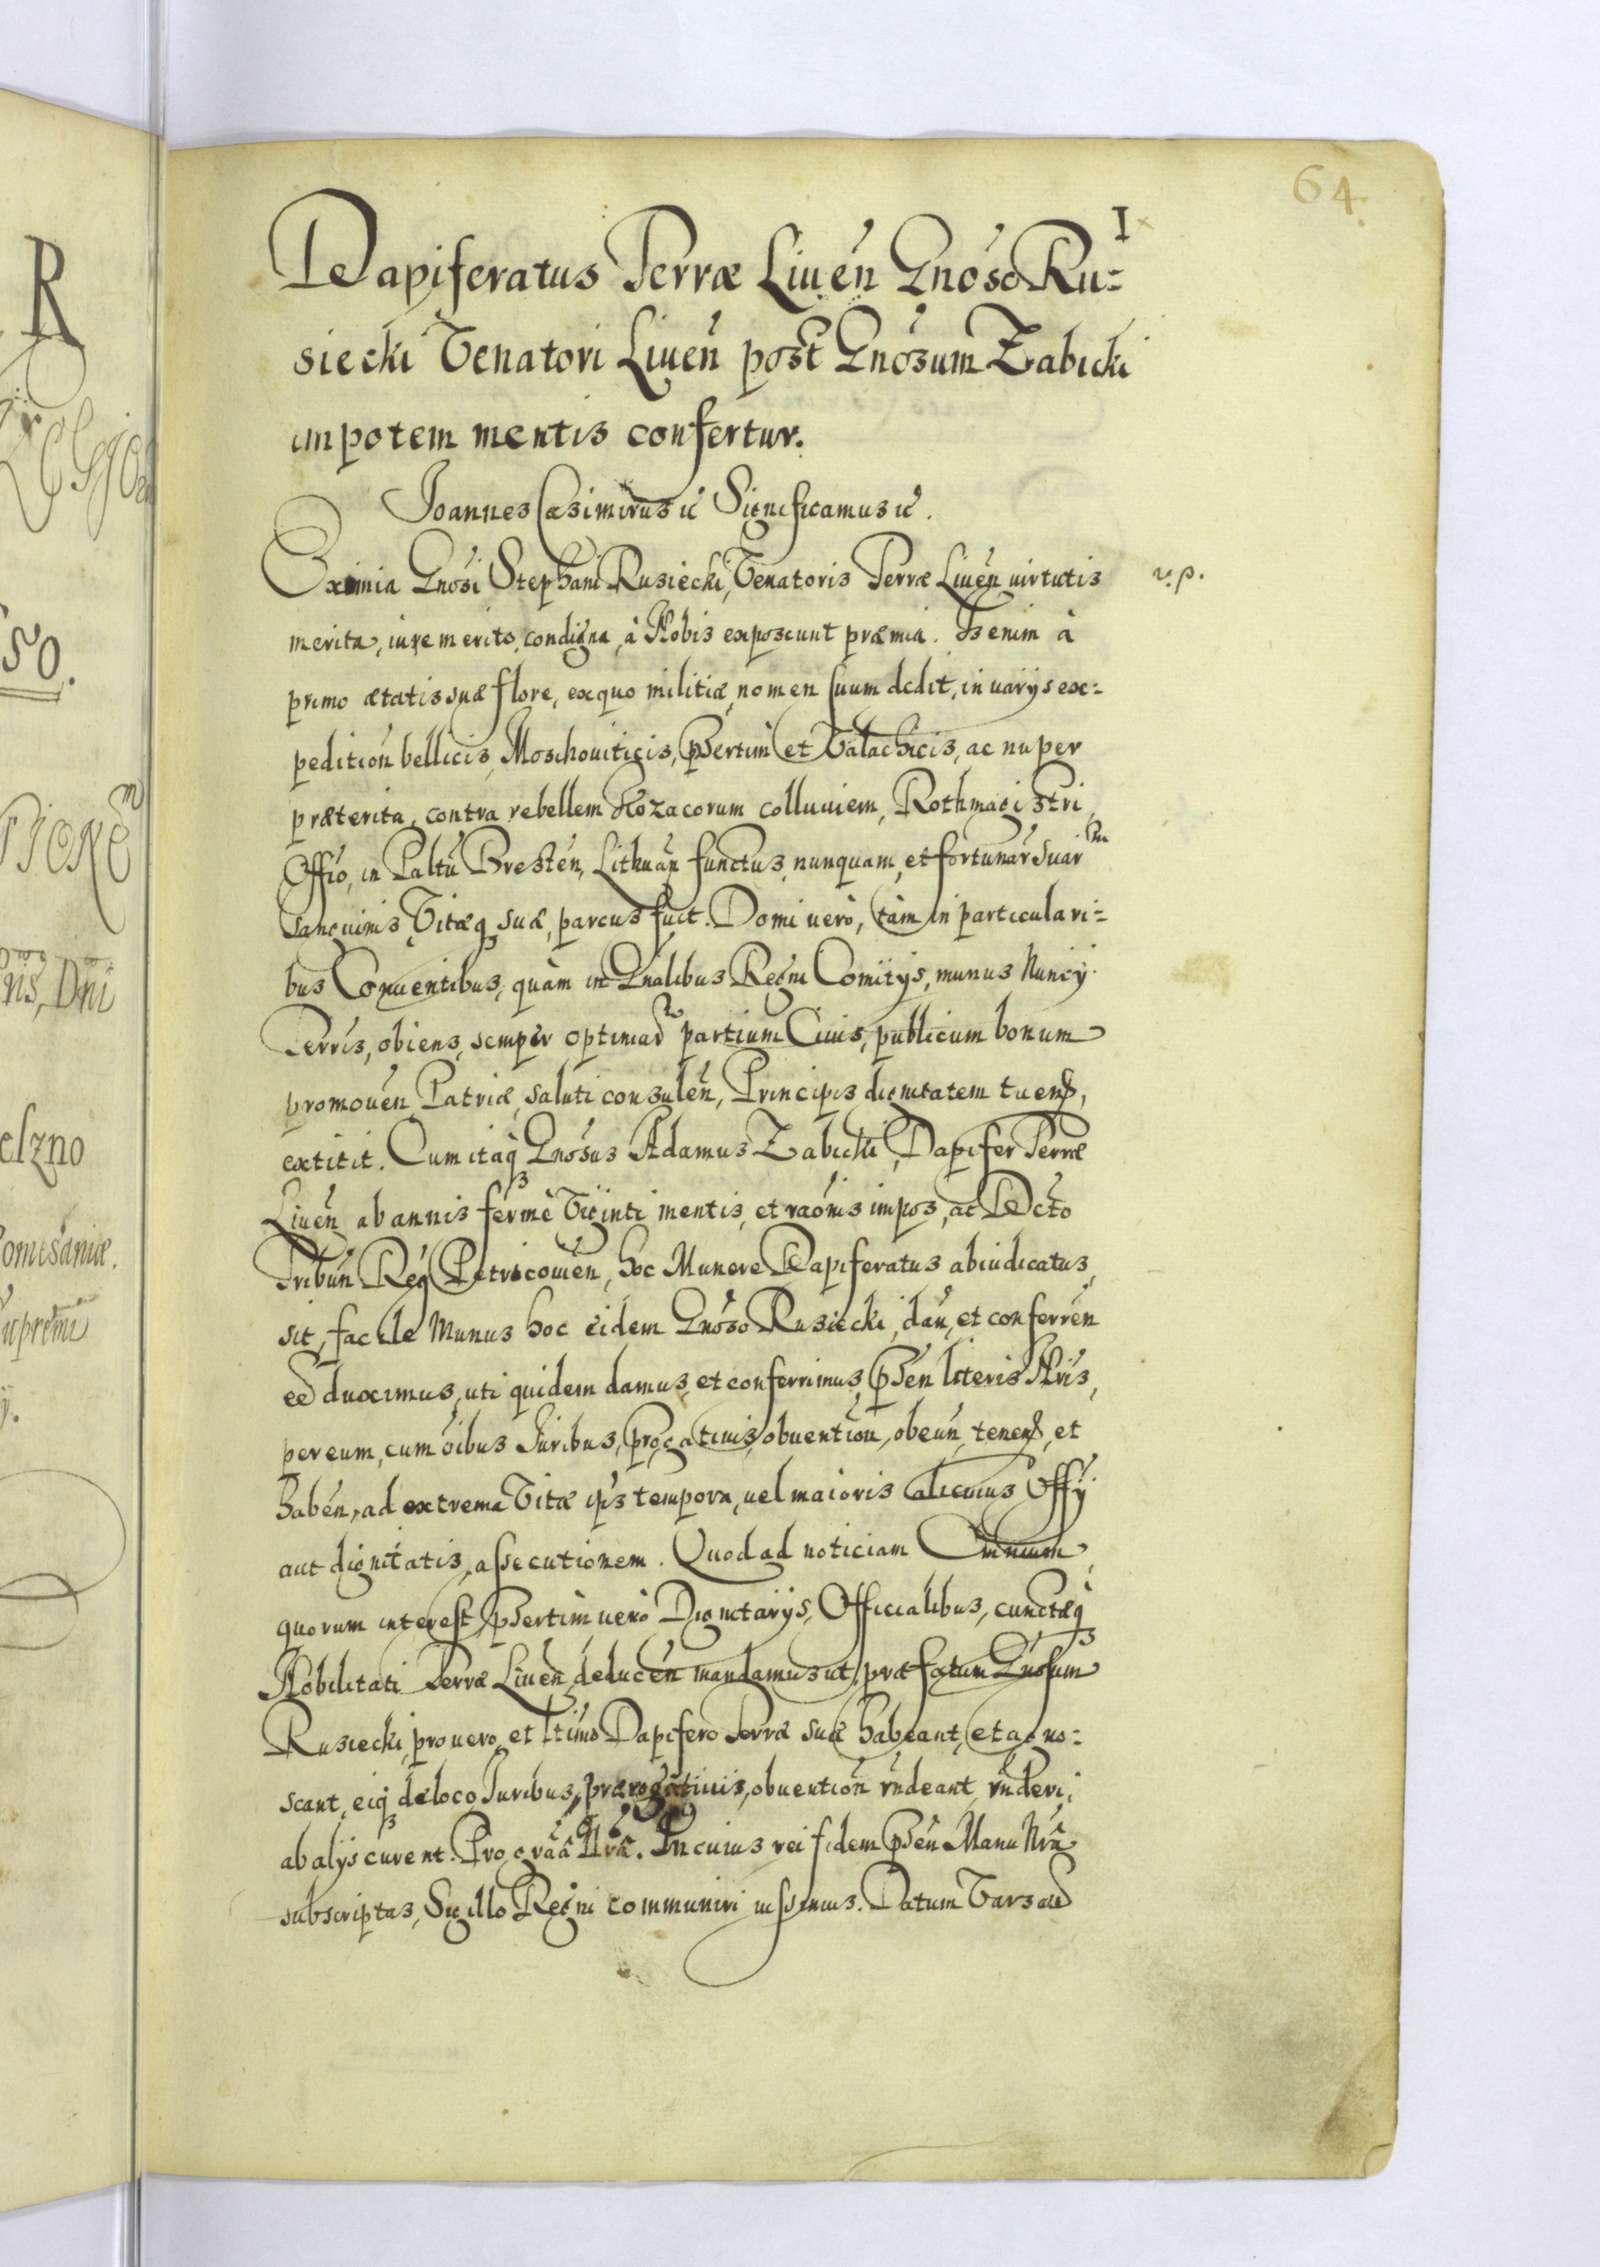 64.
I
Dapiferatus Terræ Liuen̄ Gnoso Ru-
siecki Venatori Liuen̄ post Gnosum Zabicki
impotem mentis confertur.
Joannes Casimirus &c Significamus &c.
Eximia Gnosi Stephani Rusiecki, Venatoris Terræ Liuen̄ virtutis v. p.
merita, iure merito, condigna, à Nobis exposcunt præmia. Is enim à
primo ætatis suæ flore, ex quo militiæ, nomen suum dedit, in uarijs ex-
pedition̄ bellicis, Moschouiticis, p̄sertim et Valachicis, ac nuper
præterita, contra rebellem Kozacorum colluuiem, Rothmagistri
Offīo, in Pałtū Bresten̄, Lithuan̄ functus, nunquam, et fortunar̄ suar̄
sanguinis, Vitæq suæ, parcus fuit. Domi uerò, tàm in particulari-
bus Conuentibus, quàm in Gnalibus Regni Comitijs, munus Nuncij
Terris, obiens, semper optimar̄ partium Ciuis, publicum bonum
promouen̄ Patriæ, saluti consulen̄, Principis dignitatem tuend,
extitit. Cum itaq Gnosus Adamus Zabicki, Dapifer Terræ
Liuen̄ ab annis fermè Viginti mentis, et raōnis impos, ac Decto
Tribun̄ Reg Petricouien̄, hoc Munere Dapiferatus abiudicatus
sit, facile Munus hoc eidem Gnoso Rusiecki, dan̄, et conferren̄
eē duximus, uti quidem damus, et conferrimus, p̄sen literis Nris,
per eum, cum oībus Juribus, prōgatiuis, obuention̄, obeun̄, tenend, et
haben̄, ad extrema Vitæ ip̄s tempora, uel maioris alicuius Offij
aut dignitatis, assecutionem. Quod ad noticiam Omnium,
quorum interest, p̄sertim uerò Dignitarijs, Officialibus, cunctæq
Nobilitati Terræ Liuen̄ deducen̄ mandamus ut præfatum Gnosum
Rusiecki, pro uero, et ltimo Dapifero Terræ suæ habeant, et agno-
scant, eiq de loco Juribus, prærogatiuis, obuention̄ rn̄deant, rn̄deri,
ab alijs curent. Pro gra̅a Nrā. In cuius rei fidem p̄sen̄ Manu Nrā
subscriptas, Sigillo Regni communiri iussimus. Datum Varsau